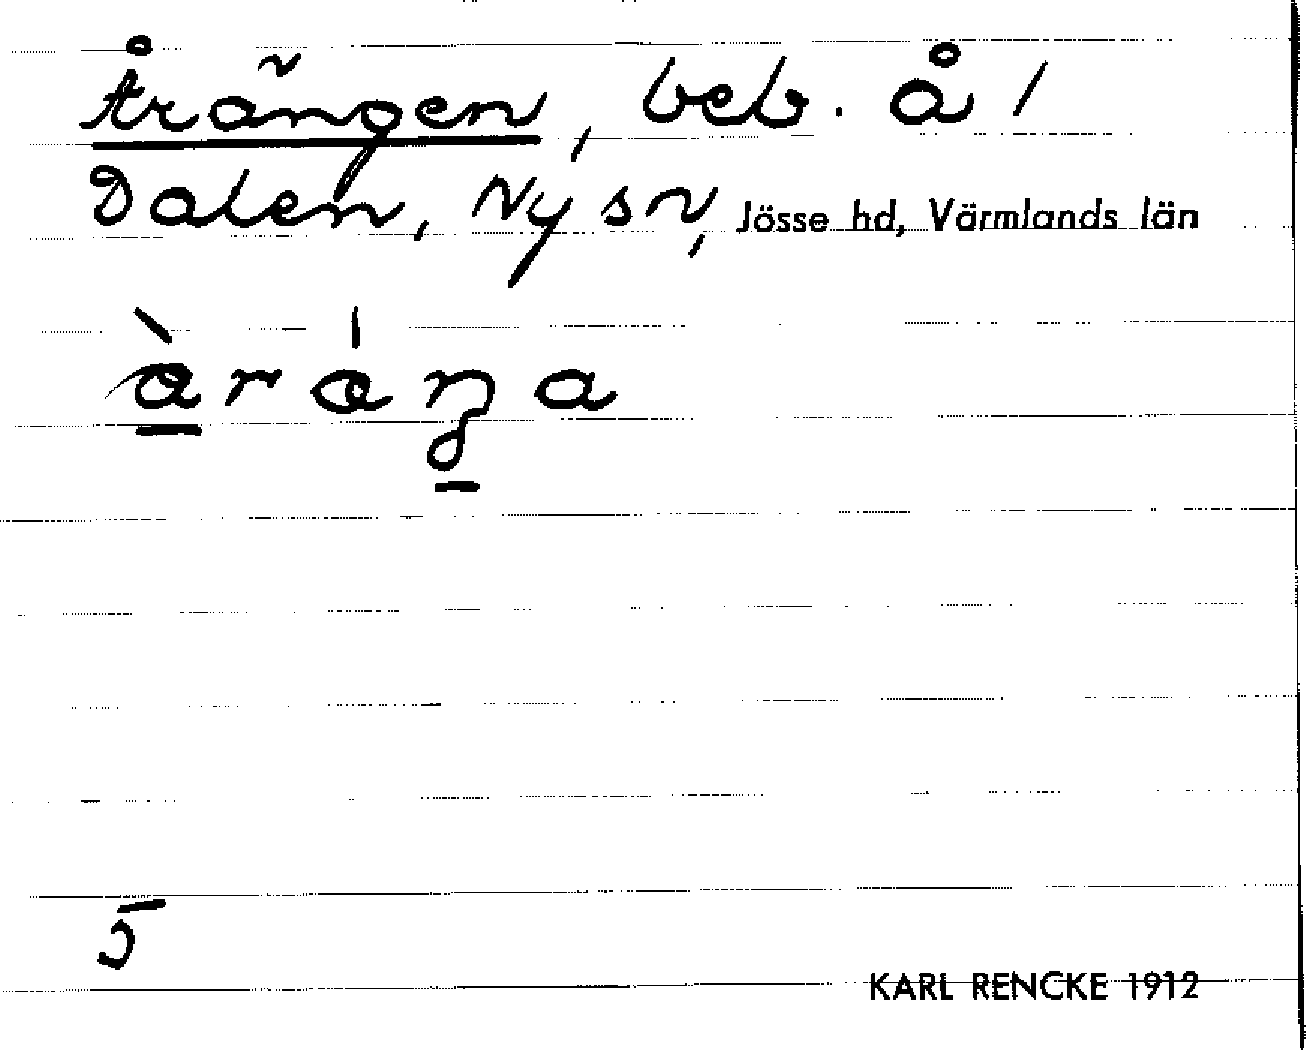 Årängen, beb. å /
Dalen, Ny sn, Jösse hd, Värmlands län
5
KARL RENCKE 1912